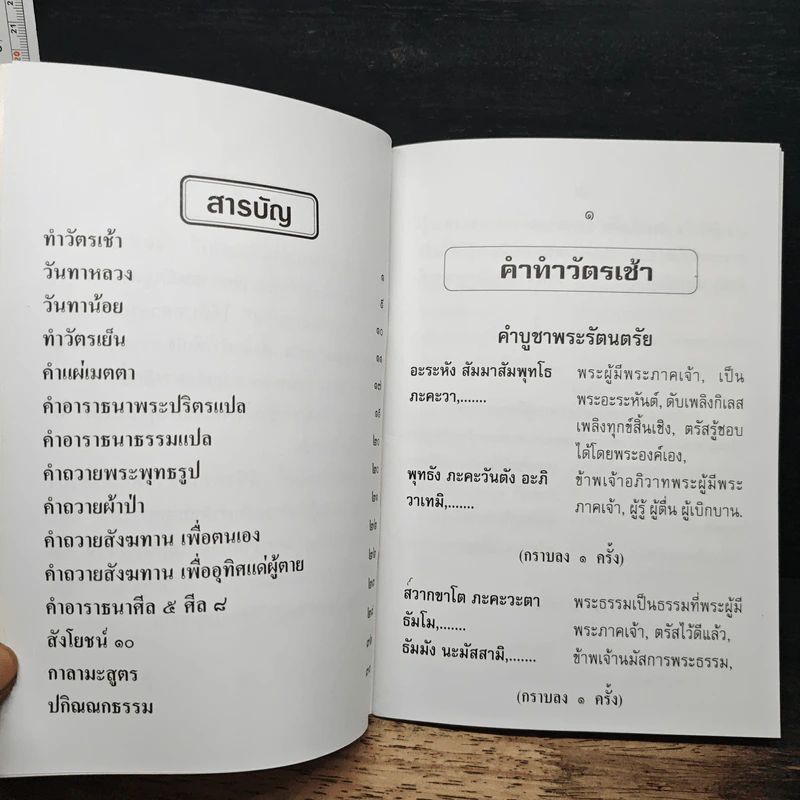 สารบัญ
ทำวัตรเช้า
วันทาหลวง ๑
วันทาน้อย ๕
ทำวัตรเย็น ๑๐
คำแผ่เมตตา ๑๑
คำอาราธนาพระปริตรแปล ๑๗
คำอาราธนาธรรมแปล
คำถวายพระพุทธรูป ๒๐
คำถวายผ้าป่า ๒๐
คำถวายสังฆทาน เพื่อตนเอง ๒๑
คำถวายสังฆทาน เพื่ออุทิศแด่ผู้ตาย ๒๒
คำอาราธนาศีล ๕ ศีล ๘
สังโยชน์ ๑๐
กาลามะสูตร
ปกิณณกธรรม
๑
คำทำวัตรเช้า
คำบูชาพระรัตนตรัย
อะระหัง สัมมาสัมพุทโธ พระผู้มีพระภาคเจ้า, เป็น
ภะคะวา,....... พระอะระหันต์, ดับเพลิงกิเลส
เพลิงทุกข์สิ้นเชิง, ตรัสรู้ชอบ
ได้โดยพระองค์เอง,
พุทธัง ภะคะวันตัง อะภิ ข้าพเจ้าอภิวาทพระผู้มีพระ
วาเทมิ,....... ภาคเจ้า, ผู้รู้ ผู้ตื่น ผู้เบิกบาน.
(กราบลง ๑ ครั้ง)
ส๎วากขาโต ภะคะวะตา พระธรรมเป็นธรรมที่พระผู้มี
ธัมโม,....... พระภาคเจ้า, ตรัสไว้ดีแล้ว,
ธัมมัง นะมัสสามิ,....... ข้าพเจ้านมัสการพระธรรม,
(กราบลง ๑ ครั้ง)